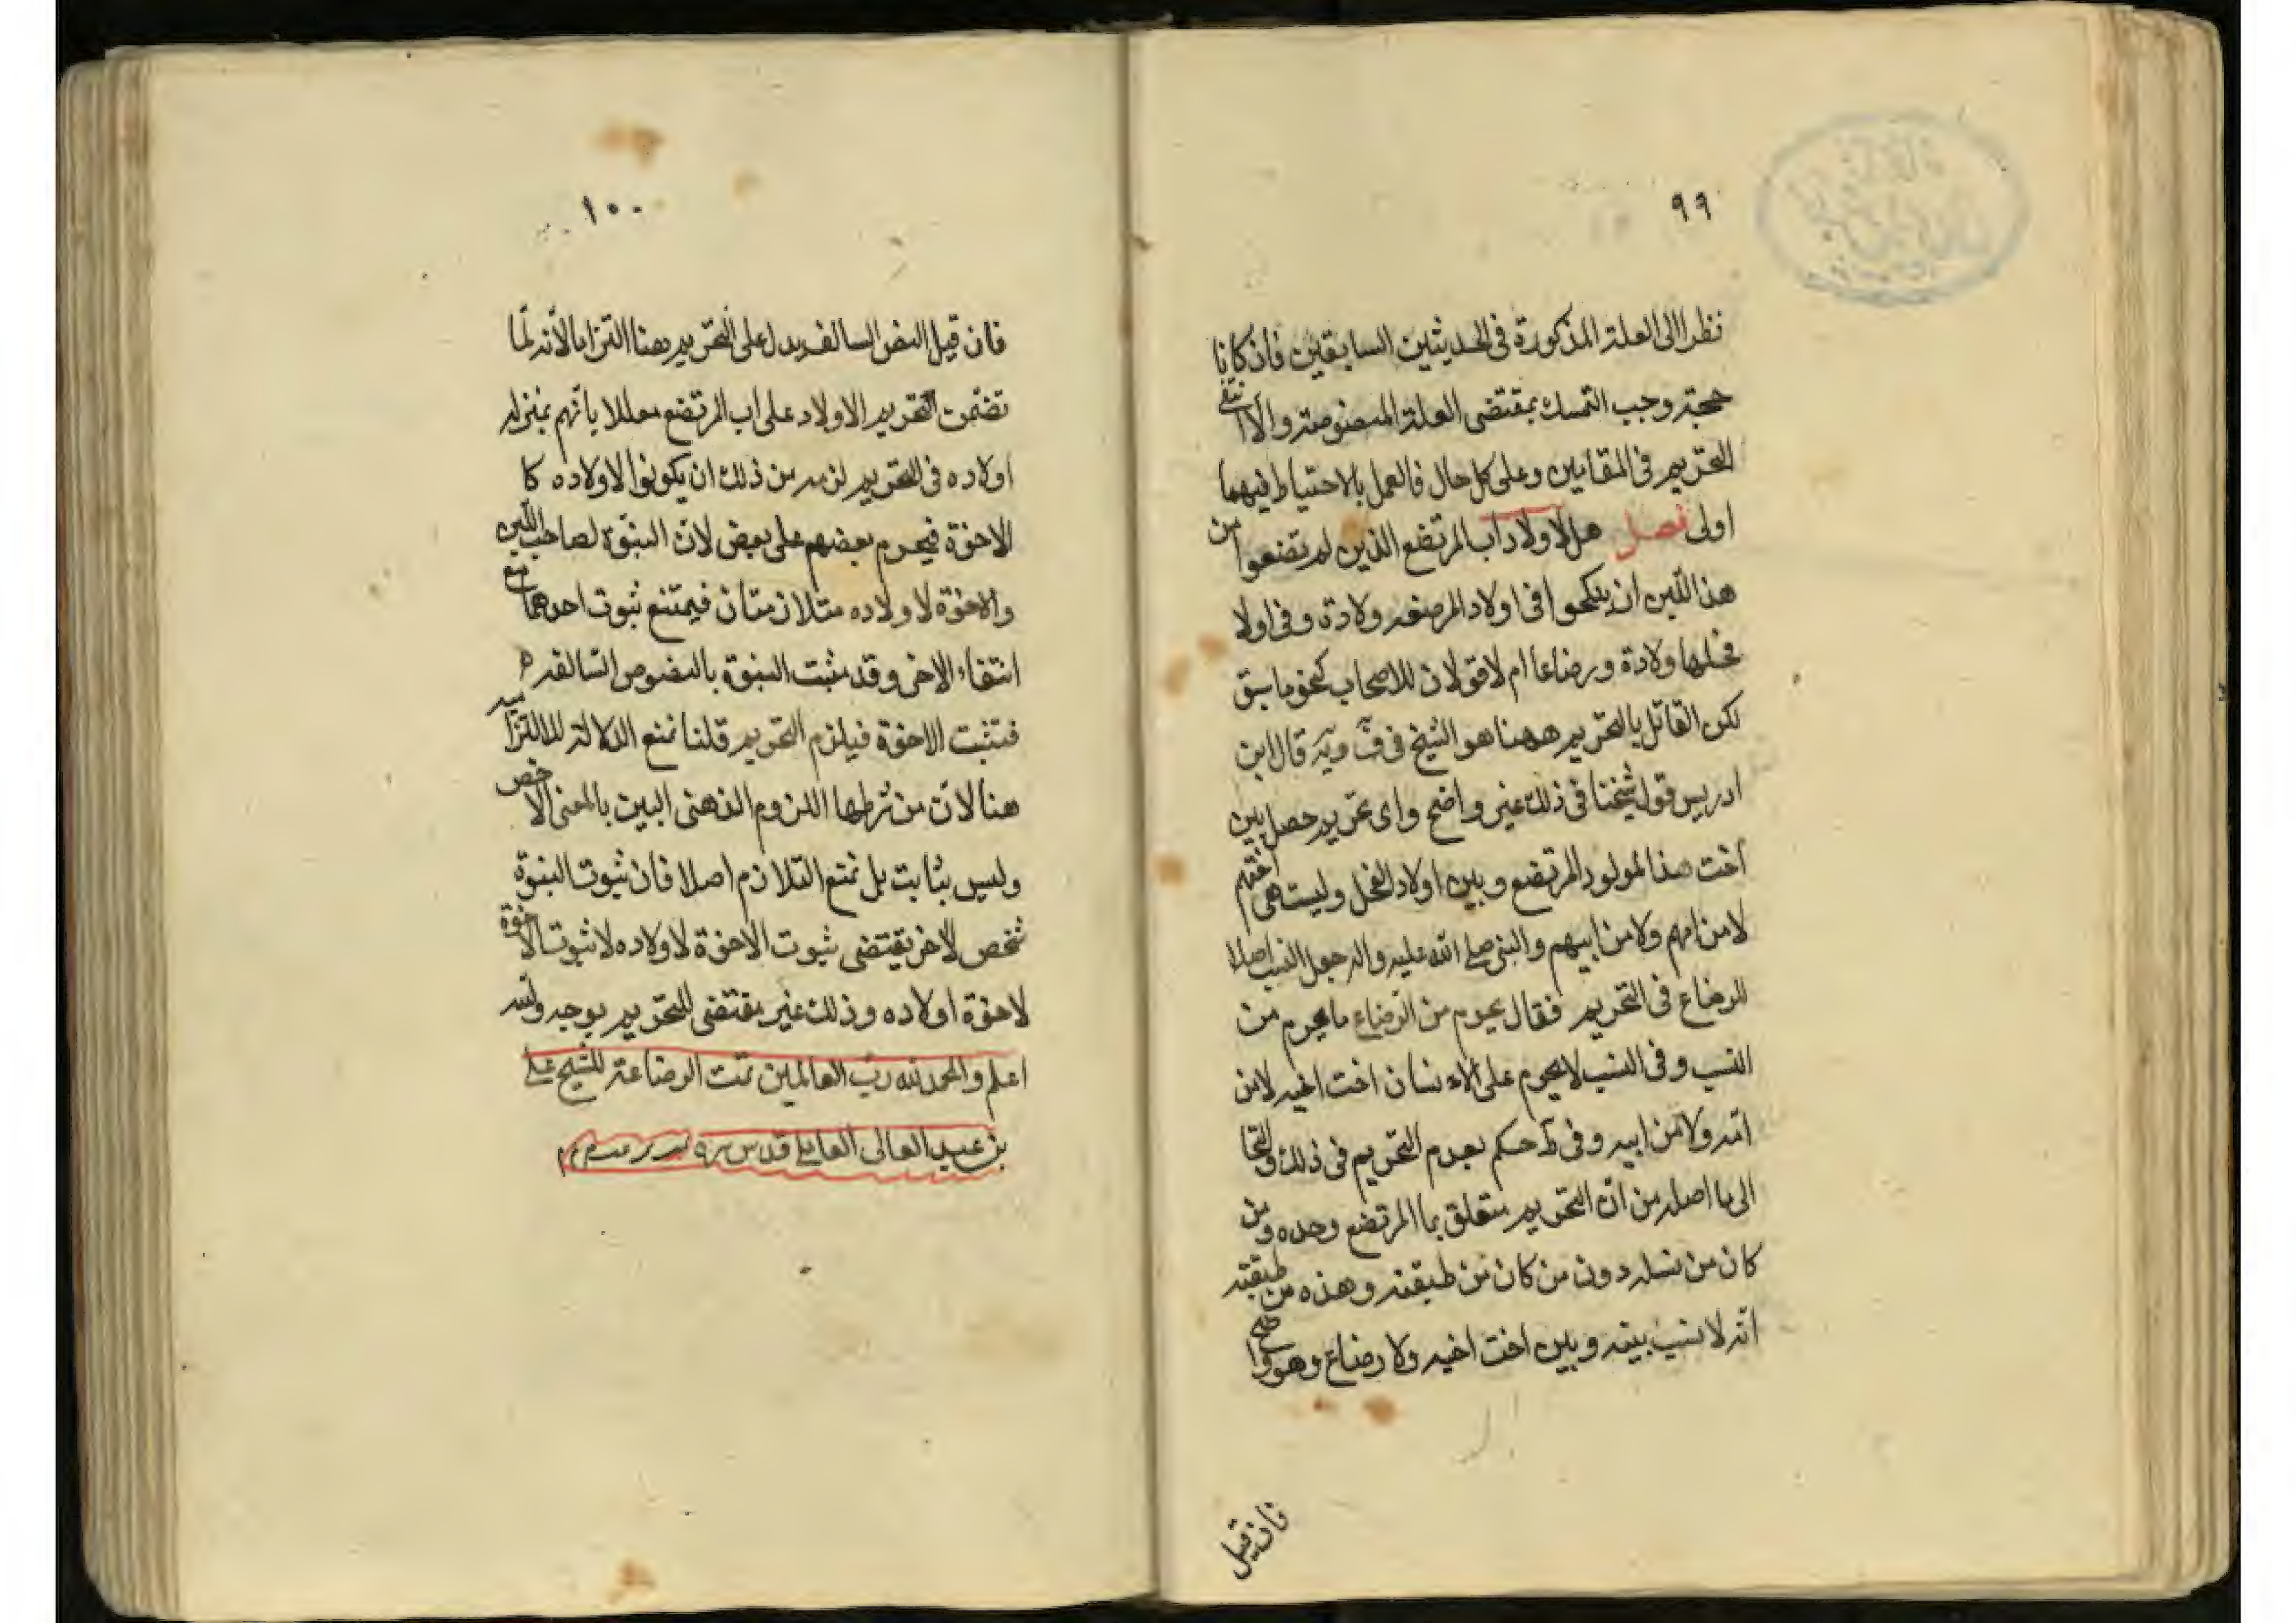 ٩٩
نظرا الى العلة المذكورة فى الحديثين السابقين فان كانا
حجة وجب التمسك بمقتضى العلة المنصوصة والا انتفى
التحريم فى المقامين وعلى كل حال فالعمل بالاحتياط فيهما
اولى فصل هل لاولاد اب المرتضع الذين لم يرتضعوا من
هذا اللبن ان ينكحوا فى اولاد المرضعه ولادة وفى اولا
فحلها ولادة ورضاعا ام لا قولان للاصحاب كنحو ما سبق
لكن القائل بالتحريم ههنا هو الشيخ فى ف ويه قال ابن
ادريس قول شيخنا فى ذلك غير واضح واى تحريم حصل بين
اخت هذا المولود المرتضع وبين اولاد الفحل وليست هى اختهم
لا من امهم ولا من ابيهم والنبى صلى الله عليه واله جعل النسب اصلا
للرضاع فى التحريم فقال يحرم من الرضاع ما يحرم من
النسب وفى النسب لا يحرم على الانسان اخت اخيه لا من
امه ولا من ابيه وفى ط حكم بعدم التحريم فى ذلك والتجا
الى ما اصله من ان التحريم متعلق بما المرتضع وحده ومن
كان من نسله دون من كان من طبقته وهذه من طبقته
انه لا نسب بينه وبين اخت اخيه ولا رضاع وهو واضح
فان قيل
١٠٠
فان قيل النص السالف يدل على التحريم هنا التزاما لانه لما
تضمن التحريم الاولاد على اب المرتضع معللا بانهم بمنزلة
اولاده فى التحريم لزم من ذلك ان يكونوا لاولاده كا
الاخوة فيحرم بعضهم على بعض لان البنوة لصاحب اللبن
والاخوة لاولاده متلازمتان فيمتنع ثبوت احدهما مع
انتفاء الاخرى وقد ثبت البنوة بالنصوص السالفة
فتثبت الاخوة فيلزم التحريم قلنا نمنع الدلالة الالتزامية
هنا لان من شرطها اللزوم الذهنى البين بالمعنى الاخص
وليس بثابت بل نمتع التلازم اصلا فان ثبوت البنوة
شخص لاخر يقتضى ثبوت الاخوة لاولاده لا ثبوت الاخوة
لاخوة اولاده وذلك غير مقتضى للتحريم بوجه والله
اعلم والحمد لله رب العالمين تمت الرضاعة للشيخ على
بن عبد العالى العاملى قدس سره